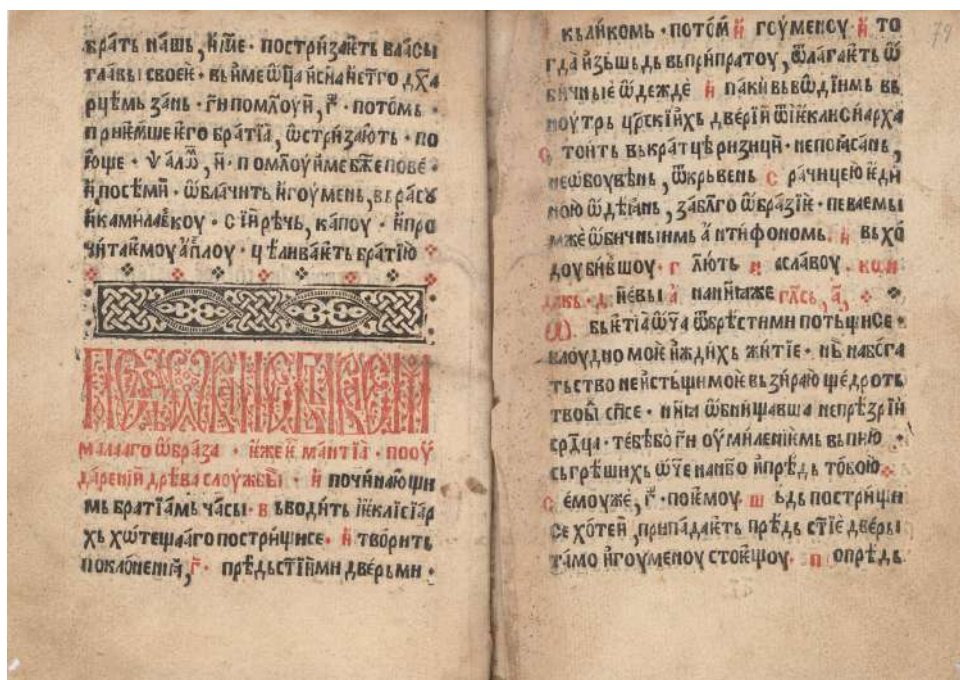 братъ нашь, и҆ме · постри́заѥть вла́сы
гла́вы своеѥ · вь име ѿца и сна и стго дх҃а
рцѣмь за́нь · г҃и помл҃оуи, г҃ · потомь ·
прие́мше ѥго бра́тїа, ѡ҆стри́заю́ть · по
ю́ще · ѱало́м, н҃ · помл҃оуи ме бж҃е по ве ·
и҆ по се́ми · ѡ҆блачить и҆гоу́мень, вь ра́соу
и҆ камила́вкоу · сїи҆ рѣчь, ка́поу · и҆ про
чи́таѥмоу а҆п҃лоу · цѣлива́ѥть бра́тїю
малааго ѡ҆браза · и҆же и҆ ма́нтїа · по оу
да́ренїи дрѣва слоу́жбы · и҆ почи́наю́щи
мь бра́тїамь ча́сы · вьво́дить и҆ѥкли́сїар
хь хѡте́щааго постри́щисе · и҆ тво́рить
покло́ненїи, г҃ · прѣдь ст҃їи́ми две́рьми ·
къ ли́комь · пото́м и҆ гоу́меноу · и҆ то
гда и҆зьшьдь вь при́пратоу, ѿлагаѥть ѡ
би́чныѥ ѡ҆де́жде и҆ па́ки вьвѡ́димь вь
ноу́трь цр҃ски́ихь двери́и ѿ и҆ѥкли́сїарха
стои́ть вь кра́тцѣ ри́зици · непоꙗ́сань,
неѡбоувѣнь, ѿкрьвень с ра́чицею ѥ҆ди
ною ѡ҆дѣ́ань, за бл҃го ѡ҆бра́зїе · пѣваемы
мже ѡ҆би́чныимь а҆нтифо́номь. и҆ вьхо́
доу би́вшоу · гл҃ю́ть и на сла́воу · кон
дакь · д҃невы а҆ на ни́нꙗже гла́сь, а҃,
ѡбьѥтїа ѿ҆ча ѿврѣ́сти ми потьщи́се ·
блоу́дно моѥ и҆ждихь жи́тїе · нь на бога
тьство неи҆стьщи́моѥ вьзи́раю щедроть
твои́ сп҃се · ни́нꙗ ѡ҆бнищавша не прѣзрїи
ср҃дца · тебѣ бо г҃и оу҆миле́нїимь вьпи́ю ·
сьгрѣ́шихь ѿ҆че на нб҃о и҆ прѣдь то́бою
семоуже, г҃ · поѥ́моу шьдь постри́щи
се хо́теи, припа́даѥть прѣдь ст҃їе две́ры
та́мо и҆гоу́меноу стое́щоу · п опрѣдь
79